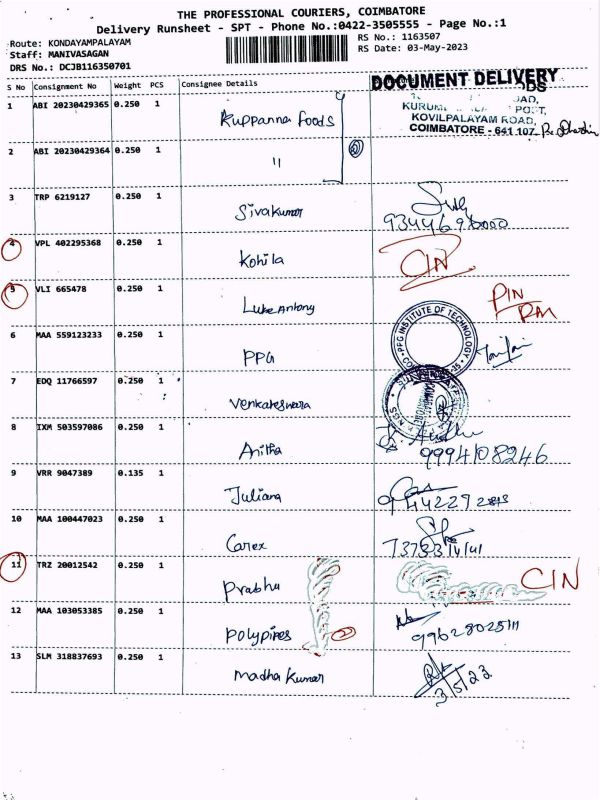 THE PROFESSIONAL COURIERS, COIMBATORE
Delivery Runsheet - SPT - Phone No.:0422-3505555 - Page No.:1
Route: KONDAYAMPALAYAM
Staff: MANIVASAGAN
DRS No.: DCJB116350701
RS No.: 1163507
RS Date: 03-May-2023
S No Consignment No Weight PCS Consignee Details
DOCUMENT DELIVERY
KOVILPALAYAM ROAD,
COIMBATORE - 641 107
1 ABI 20230429365 0.250 1 Kupparna foods
2 ABI 20230429364 0.250 1 "
3 TRP 6219127 0.250 1 Sivakumar
4 VPL 402295368 0.250 1 Kohila CIN
5 VLI 665478 0.250 1 Luke Antony PIN
RM
6 MAA 559123233 0.250 1 PPG
INSTITUTE OF TECHNOLOGY
7 EDQ 11766597 0.250 1 Venkateswara
8 IXM 503597086 0.250 1 Anitha 9994108246
9 VRR 9047389 0.135 1 Juliana
10 MAA 100447023 0.250 1 Carex
11 TRZ 20012542 0.250 1 Prabhu CIN
12 MAA 103053385 0.250 1 Polypipes
13 SLM 318837693 0.250 1 Madha Kumar
3/5/23